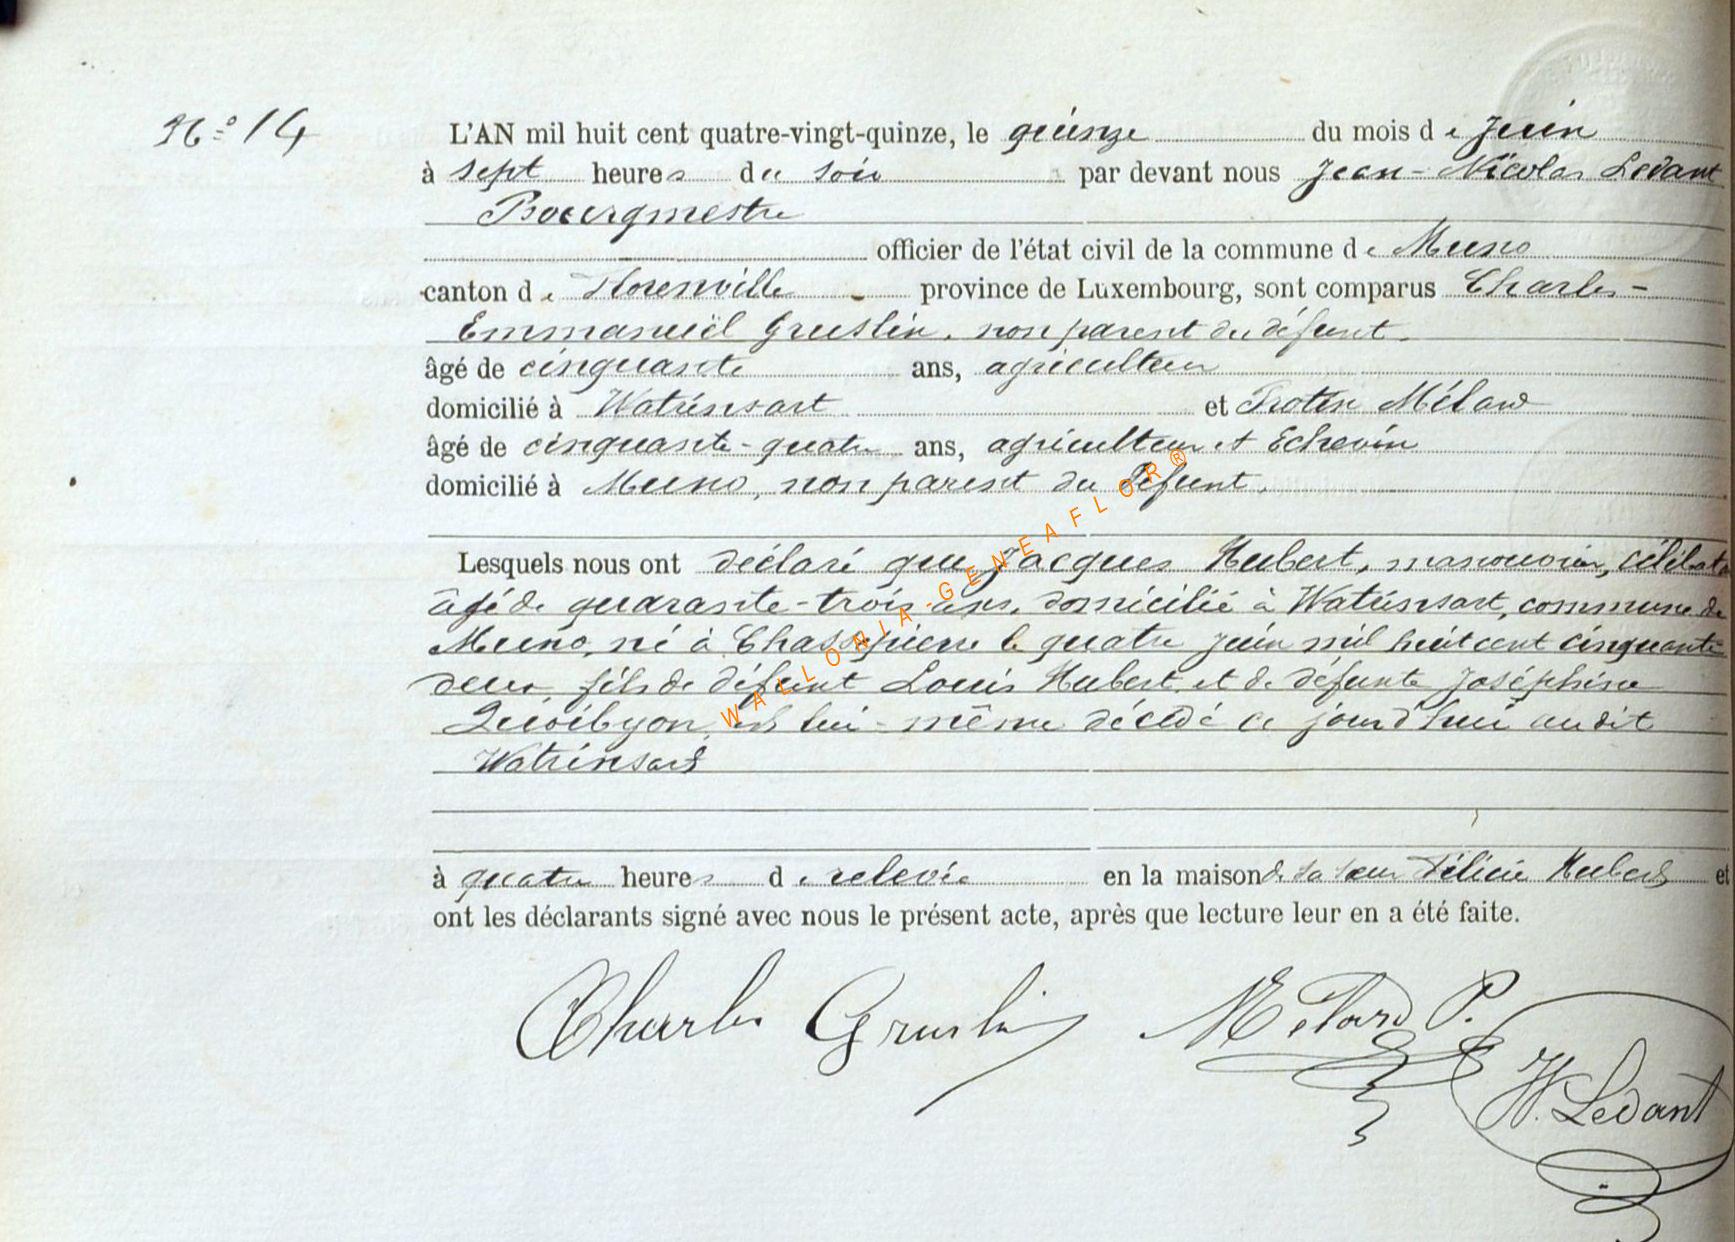 N° 14
L'AN mil huit cent quatre-vingt-quinze, le quinze du mois de Juin
à sept heures du soir par devant nous Jean-Nicolas Ledant
Bourgmestre
officier de l'état civil de la commune de Muno
canton de Florenville province de Luxembourg, sont comparus Charles-
Emmanuël Gruslin, non parent du défunt.
âgé de cinquante ans, agriculteur
domicilié à Watrinsart et Protin Mélard
âgé de cinquante-quatre ans, agriculteur et Echevin
domicilié à Muno, non parent du défunt.
Lesquels nous ont déclaré que Jacques Hubert, manouvrier, célibat
âgé de quarante-trois ans, domicilié à Watrinsart, commune de
Muno, né à Chassepierre le quatre juin mil huit cent cinquante
deux, fils de défunt Louis Hubert et de défunte Joséphine
est lui-même décédé ce jourd'hui audit
Watrinsart
à quatre heures de relevée en la maison de sa sœur Félicie Hubert et
ont les déclarants signé avec nous le présent acte, après que lecture leur en a été faite.
Charles Gruslin Mélard P.
N. Ledant
WALLONIA-GENEAFLOR®